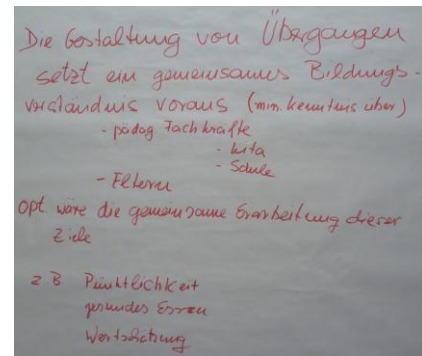 Die Gestaltung von Übergängen
setzt ein gemeinsames Bildungs-
verständnis voraus (min. kenntnis über)
- pädag Fachkräfte
- kita
- Schule
- Eltern
Opt. wäre die gemeinsame Erarbeitung dieser
Ziele
z B Pünktlichkeit
gesundes Essen
Wertschätzung